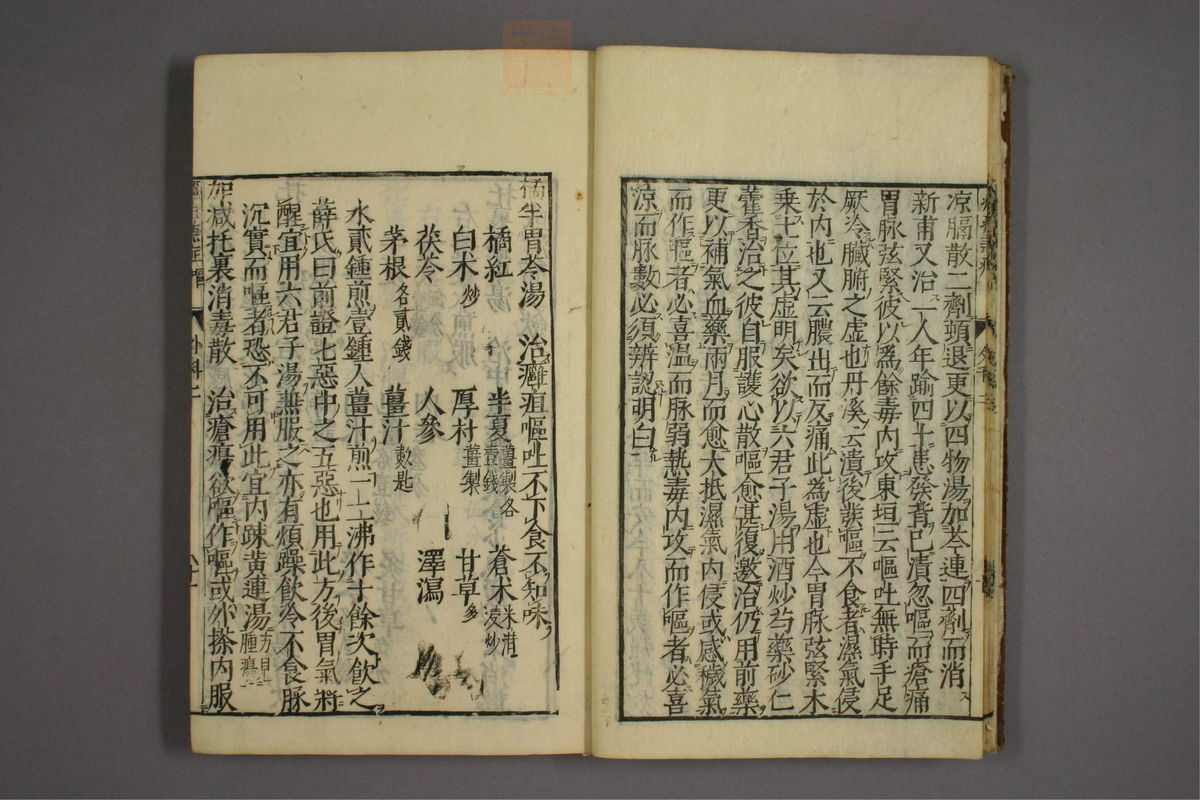 凉膈散二劑頓退更以四物湯加芩連四劑而消
新甫又治一人年踰四十患發背已潰忽嘔而瘡痛
胃脉弦緊彼以為餘毒内攻東垣云嘔吐無時手足
厥冷臟腑之虚也丹溪云潰後發嘔不食者濕氣侵
於内也又云膿出而反痛此為虚也今胃脉弦緊木
乗土位其虚明矣欲以六君子湯用酒炒芍藥砂仁
藿香治之彼自服護心散嘔愈甚復邀治仍用前藥
更以補氣血藥兩月而愈大抵濕氣内侵或感穢氣
而作嘔者必喜温而脉弱熱毒内攻而作嘔者必喜
凉而脉數必須辨認明白
橘半胃苓湯 治癰疽嘔吐不下食不知味
橘紅 半夏薑製各壹錢 蒼朮米泔浸炒
白朮炒 厚朴薑製 甘草炙
茯苓 人參 澤瀉
茅根各貳錢 薑汁數匙
水貳鍾煎壹鍾入薑汁煎一二沸作十餘次飲之
薛氏曰前證七惡中之五惡也用此方後胃氣將
醒宜用六君子湯兼服之亦有煩躁飲冷不食脉
沉實而嘔者恐不可用此宜内踈黄連湯方見腫瘍
加减托裏消毒散 治瘡瘍欲嘔作嘔或外搽内服